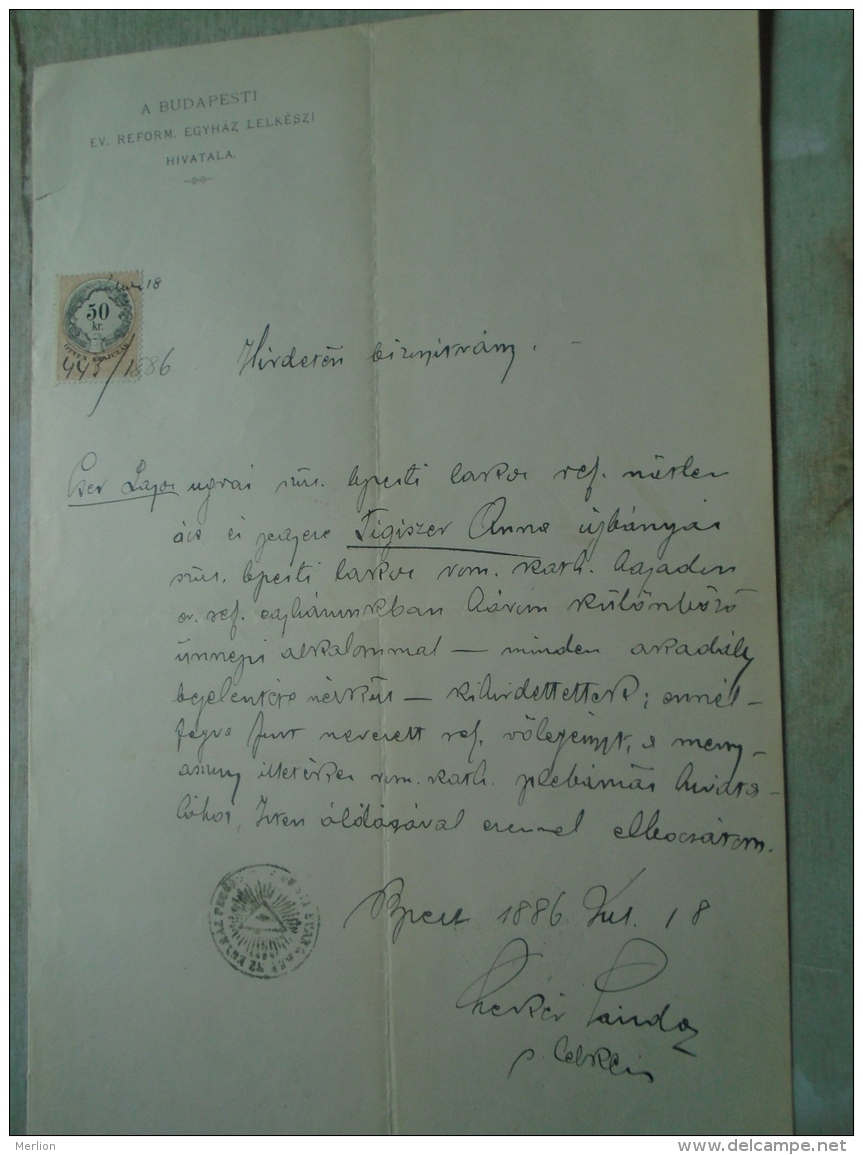 A BUDAPESTI
EV. REFORM. EGYHÁZ LELKÉSZI
HIVATALA.
18
50
kr.
443/1886
Hirdetési bizonyitvány.
Cser Lajos ugrai szül. bpesti lakos ref. nőtlen
ács és jegyese Tigiszer Anna újbányai
szül. bpesti lakos rom. kath. hajadon
ev. ref. egyházunkban három különböző
ünnepi alkalommal — minden akadály
bejelentése nélkül — kihirdettettek; ennél-
fogva fent nevezett ref. vőlegényt, a meny-
asszony illetékes rom. kath. plebániás hivata-
lához, Isten áldásával ezennel elbocsátom.
Bpest 1886. Jul. 18
Sándor
s. lelkész
Merlion
www.delcampe.net